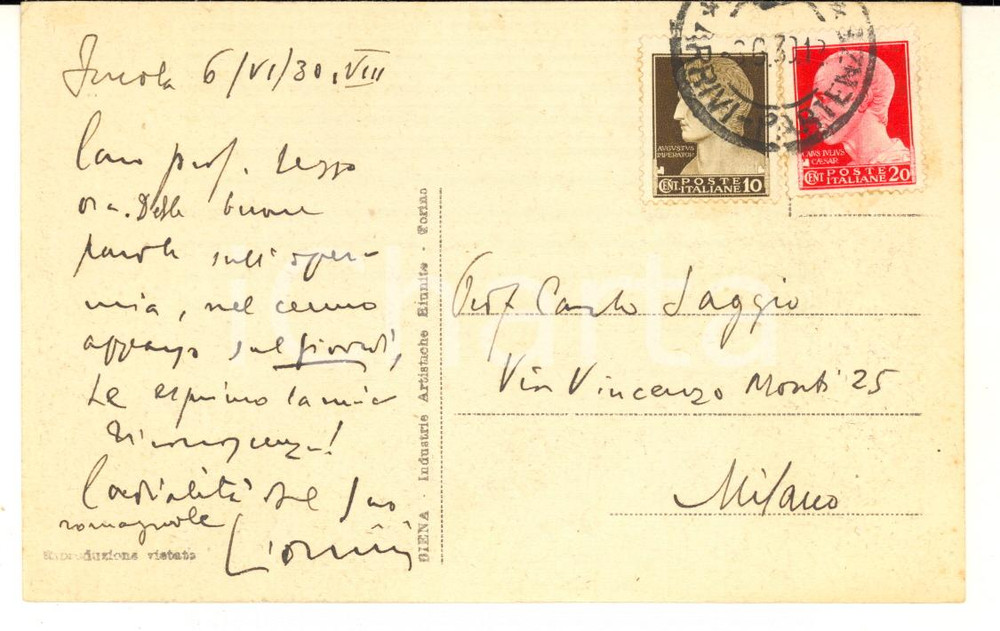 Imola 6/VI/30. VIII
Caro prof. leggo
ora. Delle buone
parole sull'opera
mia, nel cenno
apparso sul giovedì,
Le esprimo la mia
riconoscenza!
Cordialità dal suo
romagnolo
Riproduzione vietata
DIENA - Industrie Artistiche Riunite - Torino
ARRIVI
AVGVSTVS
IMPERATOR
CENT POSTE ITALIANE 10
CAIVS IVLIVS
CAESAR
CENT POSTE ITALIANE 20
Prof Carlo Saggio
Via Vincenzo Monti 25
Milano
iCharta